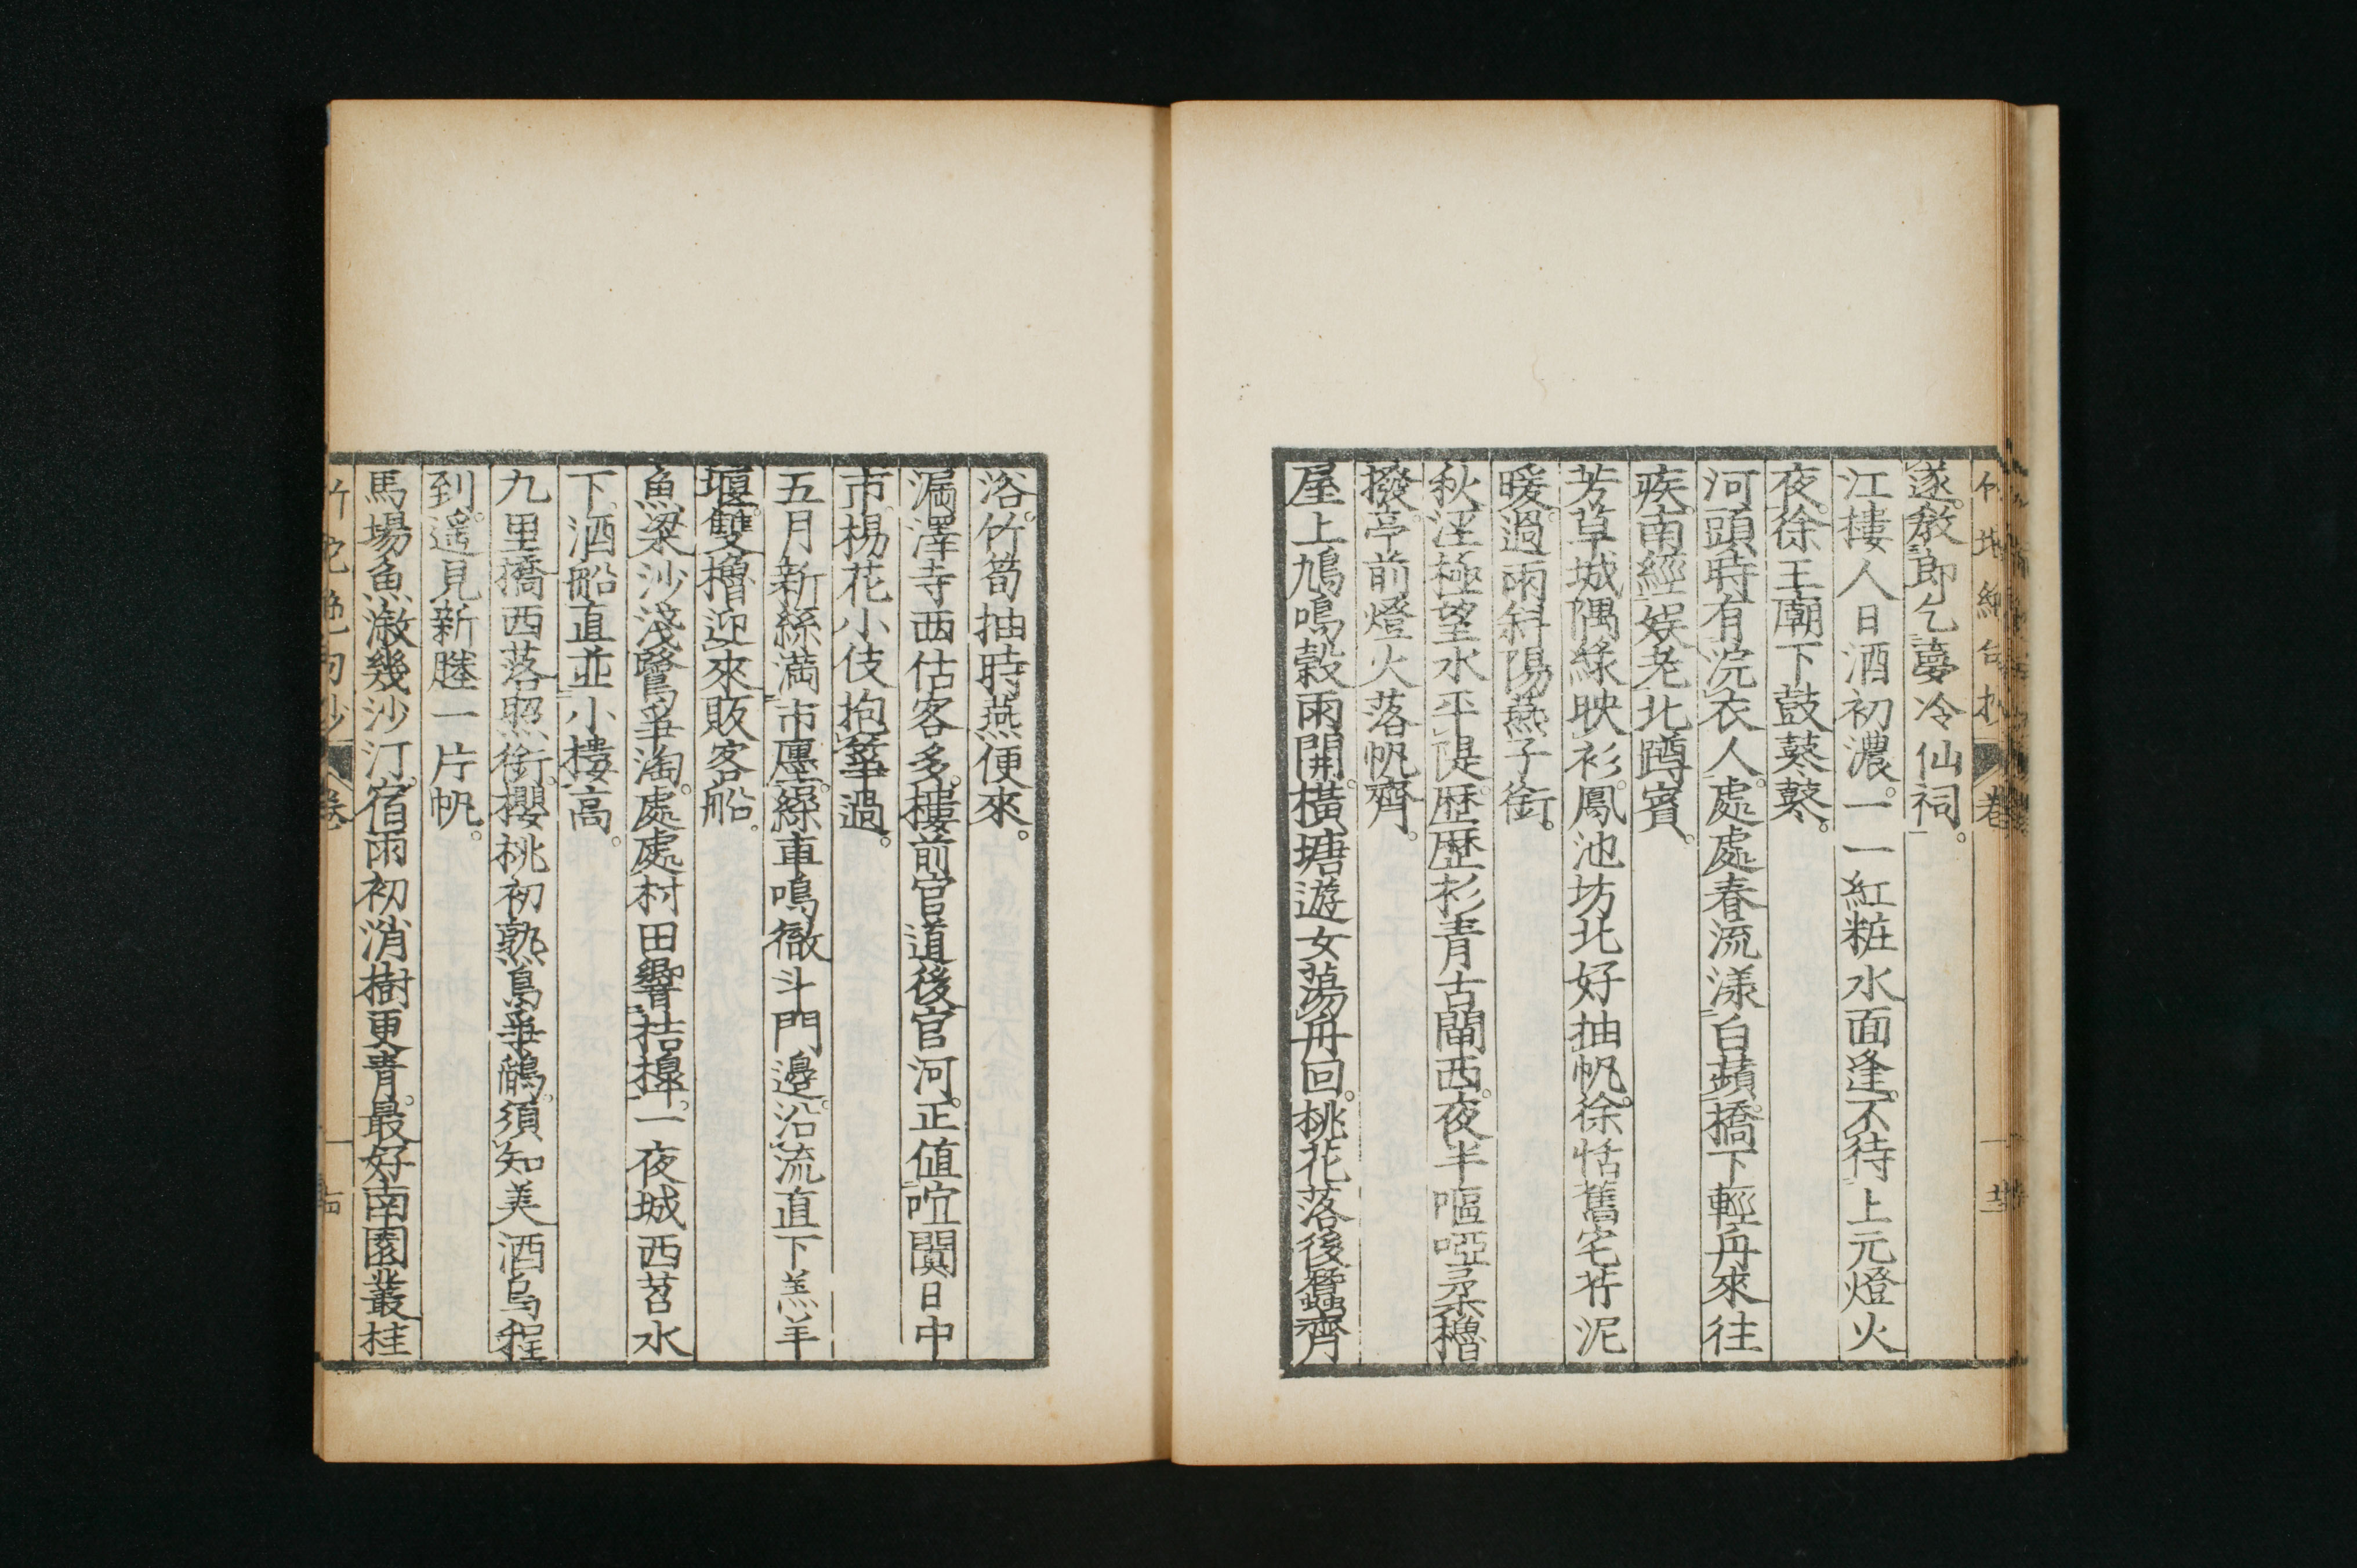 遂。敎郎乞夢冷仙祠。
江樓人日酒初濃。一一紅粧水面逢。不待上元燈火
夜。徐王廟下鼓鼕鼕。
河頭時有浣衣人。處處春流漾白蘋。橋下輕舟來往
疾。南經娱老北蹲賓。
芳草城隅綠映衫。鳳池坊北好抽帆。徐恬舊宅芹泥
暖。過雨斜陽燕子銜。
秋涇極望水平隄。歷歷杉青古閘西。夜半嘔啞柔櫓
撥。亭前燈火落帆齊。
屋上鳩鳴穀雨開。橫塘遊女蕩舟回。桃花落後蠶齊
浴。竹筍抽時燕便來。
漏澤寺西估客多。樓前官道後官河。正值喧闐日中
市。楊花小伎抱箏過。
五月新絲滿市廛。繰車鳴徹斗門邊。沿流直下羔羊
堰。雙櫓迎來販客船。
魚梁沙淺鷺爭淘。處處村田響桔槔。一夜城西苕水
下。酒船直並小樓高。
九里橋西落照銜。櫻桃初熟鳥爭鵮。須知美酒烏程
到。遥見新塍一片帆。
馬場魚漵幾沙汀。宿雨初消樹更青。最好南園叢桂